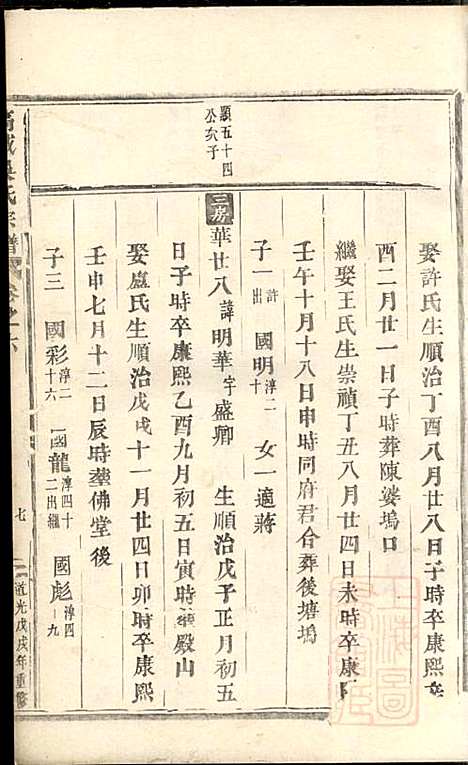 娶許氏生順治丁酉八月廿八日子時卒康熙辛
酉二月廿一日子時葬陳婆塢口
繼娶王氏生崇禎丁丑八月廿四日未時卒康熙
壬午十月十八日申時同府君合葬後塘塢
子一許出 國明淳二十 女一適蔣
顯五十四
公次子
三房華廿八諱明華字盛卿 生順治戊子正月初五
日子時卒康熙乙酉九月初五日寅時葬殿山
娶盧氏生順治戊戌十一月廿四日卯時卒康熙
壬申七月十二日辰時葬佛堂後
子三 國彩淳二十六 國龍淳四十二出繼 國彪淳四九
氏宗譜 卷之六 七 道光戊戌年重修